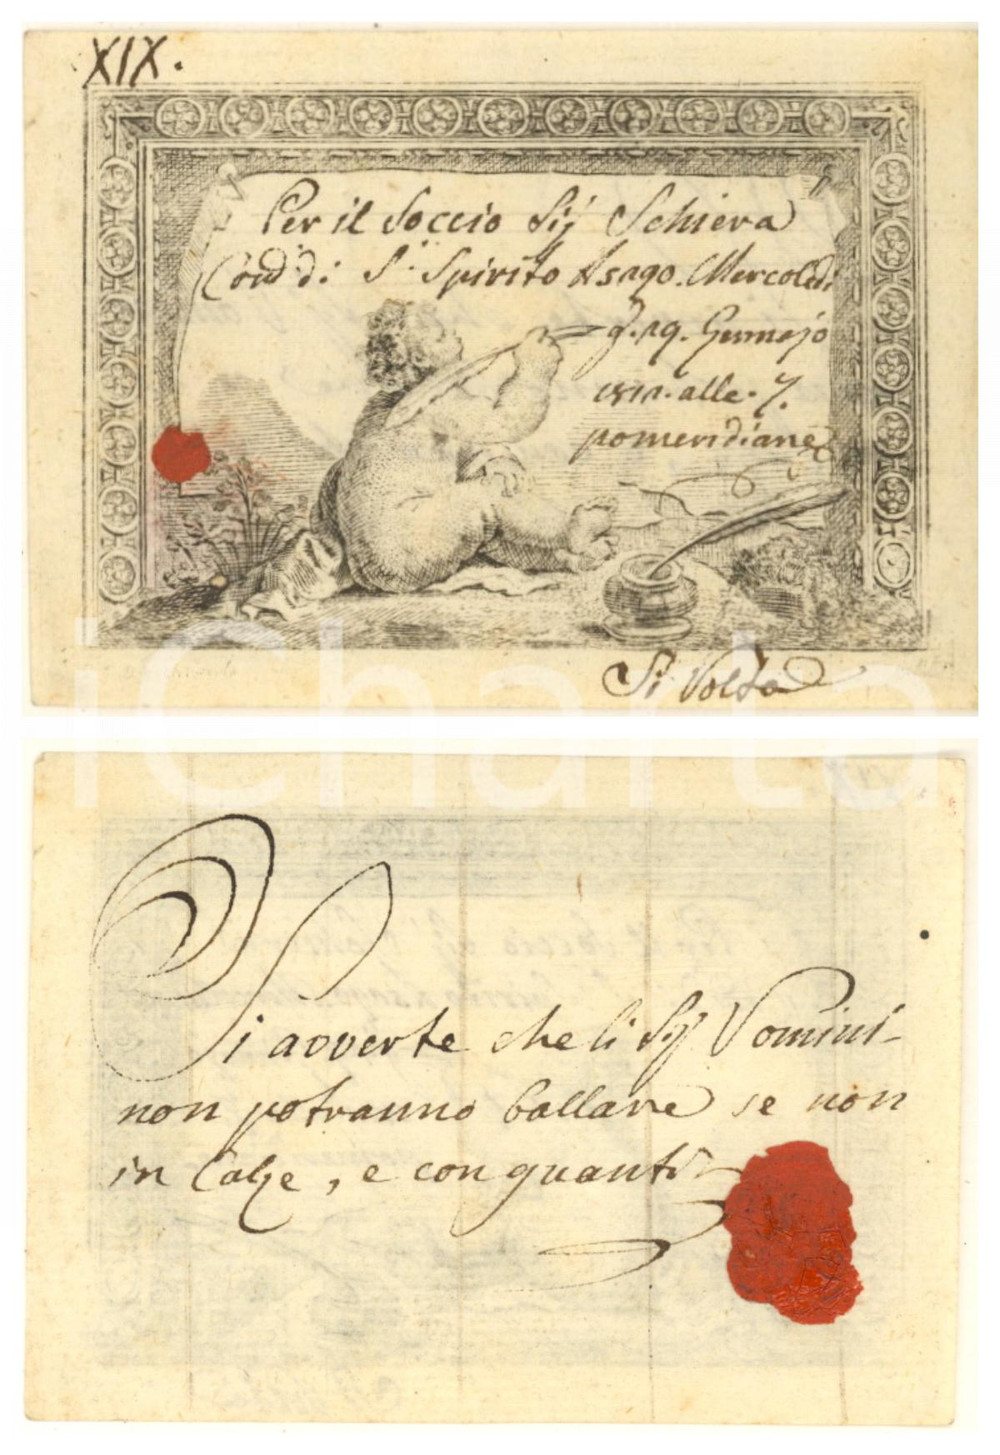 XIX.
Per il Soccio Sig Schiera
Cond. di S. Spirito Asago. Mercoledi
g. 19. Gennajo
alle 7.
pomeridiane
Si Volta
iCharta
Si avverte che li Sig Vomini
non potranno ballare se non
in Calze, e con guanti